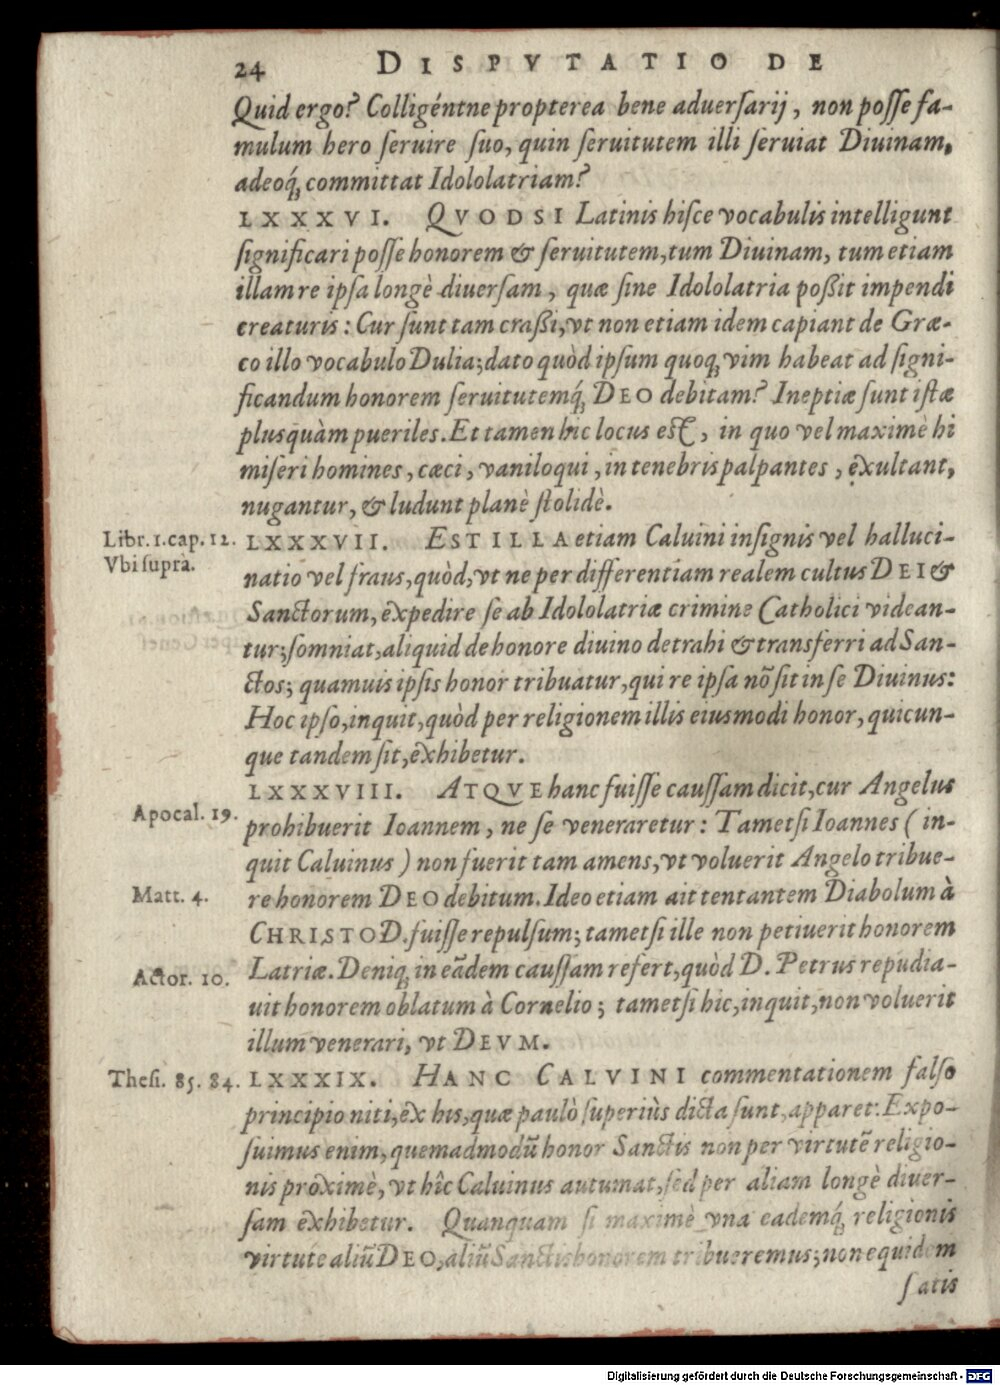 24 DISPVTATIO DE
Quid ergo? Colligéntne propterea bene aduersarij, non posse fa-
mulum hero seruire suo, quin seruitutem illi seruiat Diuinam,
adeoq́; committat Idololatriam?
LXXXVI. QVODSI Latinis hisce vocabulis intelligunt
significari posse honorem & seruitutem, tum Diuinam, tum etiam
illam re ipsa longè diuersam, quæ sine Idololatria poßit impendi
creaturis: Cur sunt tam craßi, vt non etiam idem capiant de Græ-
co illo vocabulo Dulia; dato quòd ipsum quoq; vim habeat ad signi-
ficandum honorem seruitutemq́; DEO debitam? Ineptiæ sunt istæ
plusquàm pueriles. Et tamen hic locus est, in quo vel maximè hi
miseri homines, cæci, vaniloqui, in tenebris palpantes, exultant,
nugantur, & ludunt planè stolidè.
Libr. 1. cap. 12.
Vbi suprà.
LXXXVII. EST ILLA etiam Caluini insignis vel halluci-
natio vel fraus, quòd, vt ne per differentiam realem cultus DEI &
Sanctorum, expedire se ab Idololatriæ crimine Catholici videan-
tur; somniat, aliquid de honore diuino detrahi & transferri ad San-
ctos; quamuis ipsis honor tribuatur, qui re ipsa nō sit in se Diuinus:
Hoc ipso, inquit, quòd per religionem illis eiusmodi honor, quicun-
que tandem sit, exhibetur.
LXXXVIII. ATQVE hanc fuisse caussam dicit, cur Angelus
Apocal. 19.
prohibuerit Ioannem, ne se veneraretur: Tametsi Ioannes (in-
quit Caluinus) non fuerit tam amens, vt voluerit Angelo tribue-
Matt. 4.
re honorem DEO debitum. Ideo etiam ait tentantem Diabolum à
CHRISTO D. fuisse repulsum; tametsi ille non petiuerit honorem
Actor. 10.
Latriæ. Deniq; in eādem caussam refert, quòd D. Petrus repudia-
uit honorem oblatum à Cornelio; tametsi hic, inquit, non voluerit
illum venerari, vt DEVM.
Thesi. 85. 84.
LXXXIX. HANC CALVINI commentationem falso
principio niti, ex his, quæ paulò superiùs dicta sunt, apparet: Expo-
suimus enim, quemadmodū honor Sanctis non per virtutē religio-
nis proximè, vt hîc Caluinus autumat, sed per aliam longè diuer-
sam exhibetur. Quanquam si maximè vna eademq́; religionis
virtute aliū DEO, aliū Sanctis honorem tribueremus; non equidem
satis
Digitalisierung gefördert durch die Deutsche Forschungsgemeinschaft - DFG